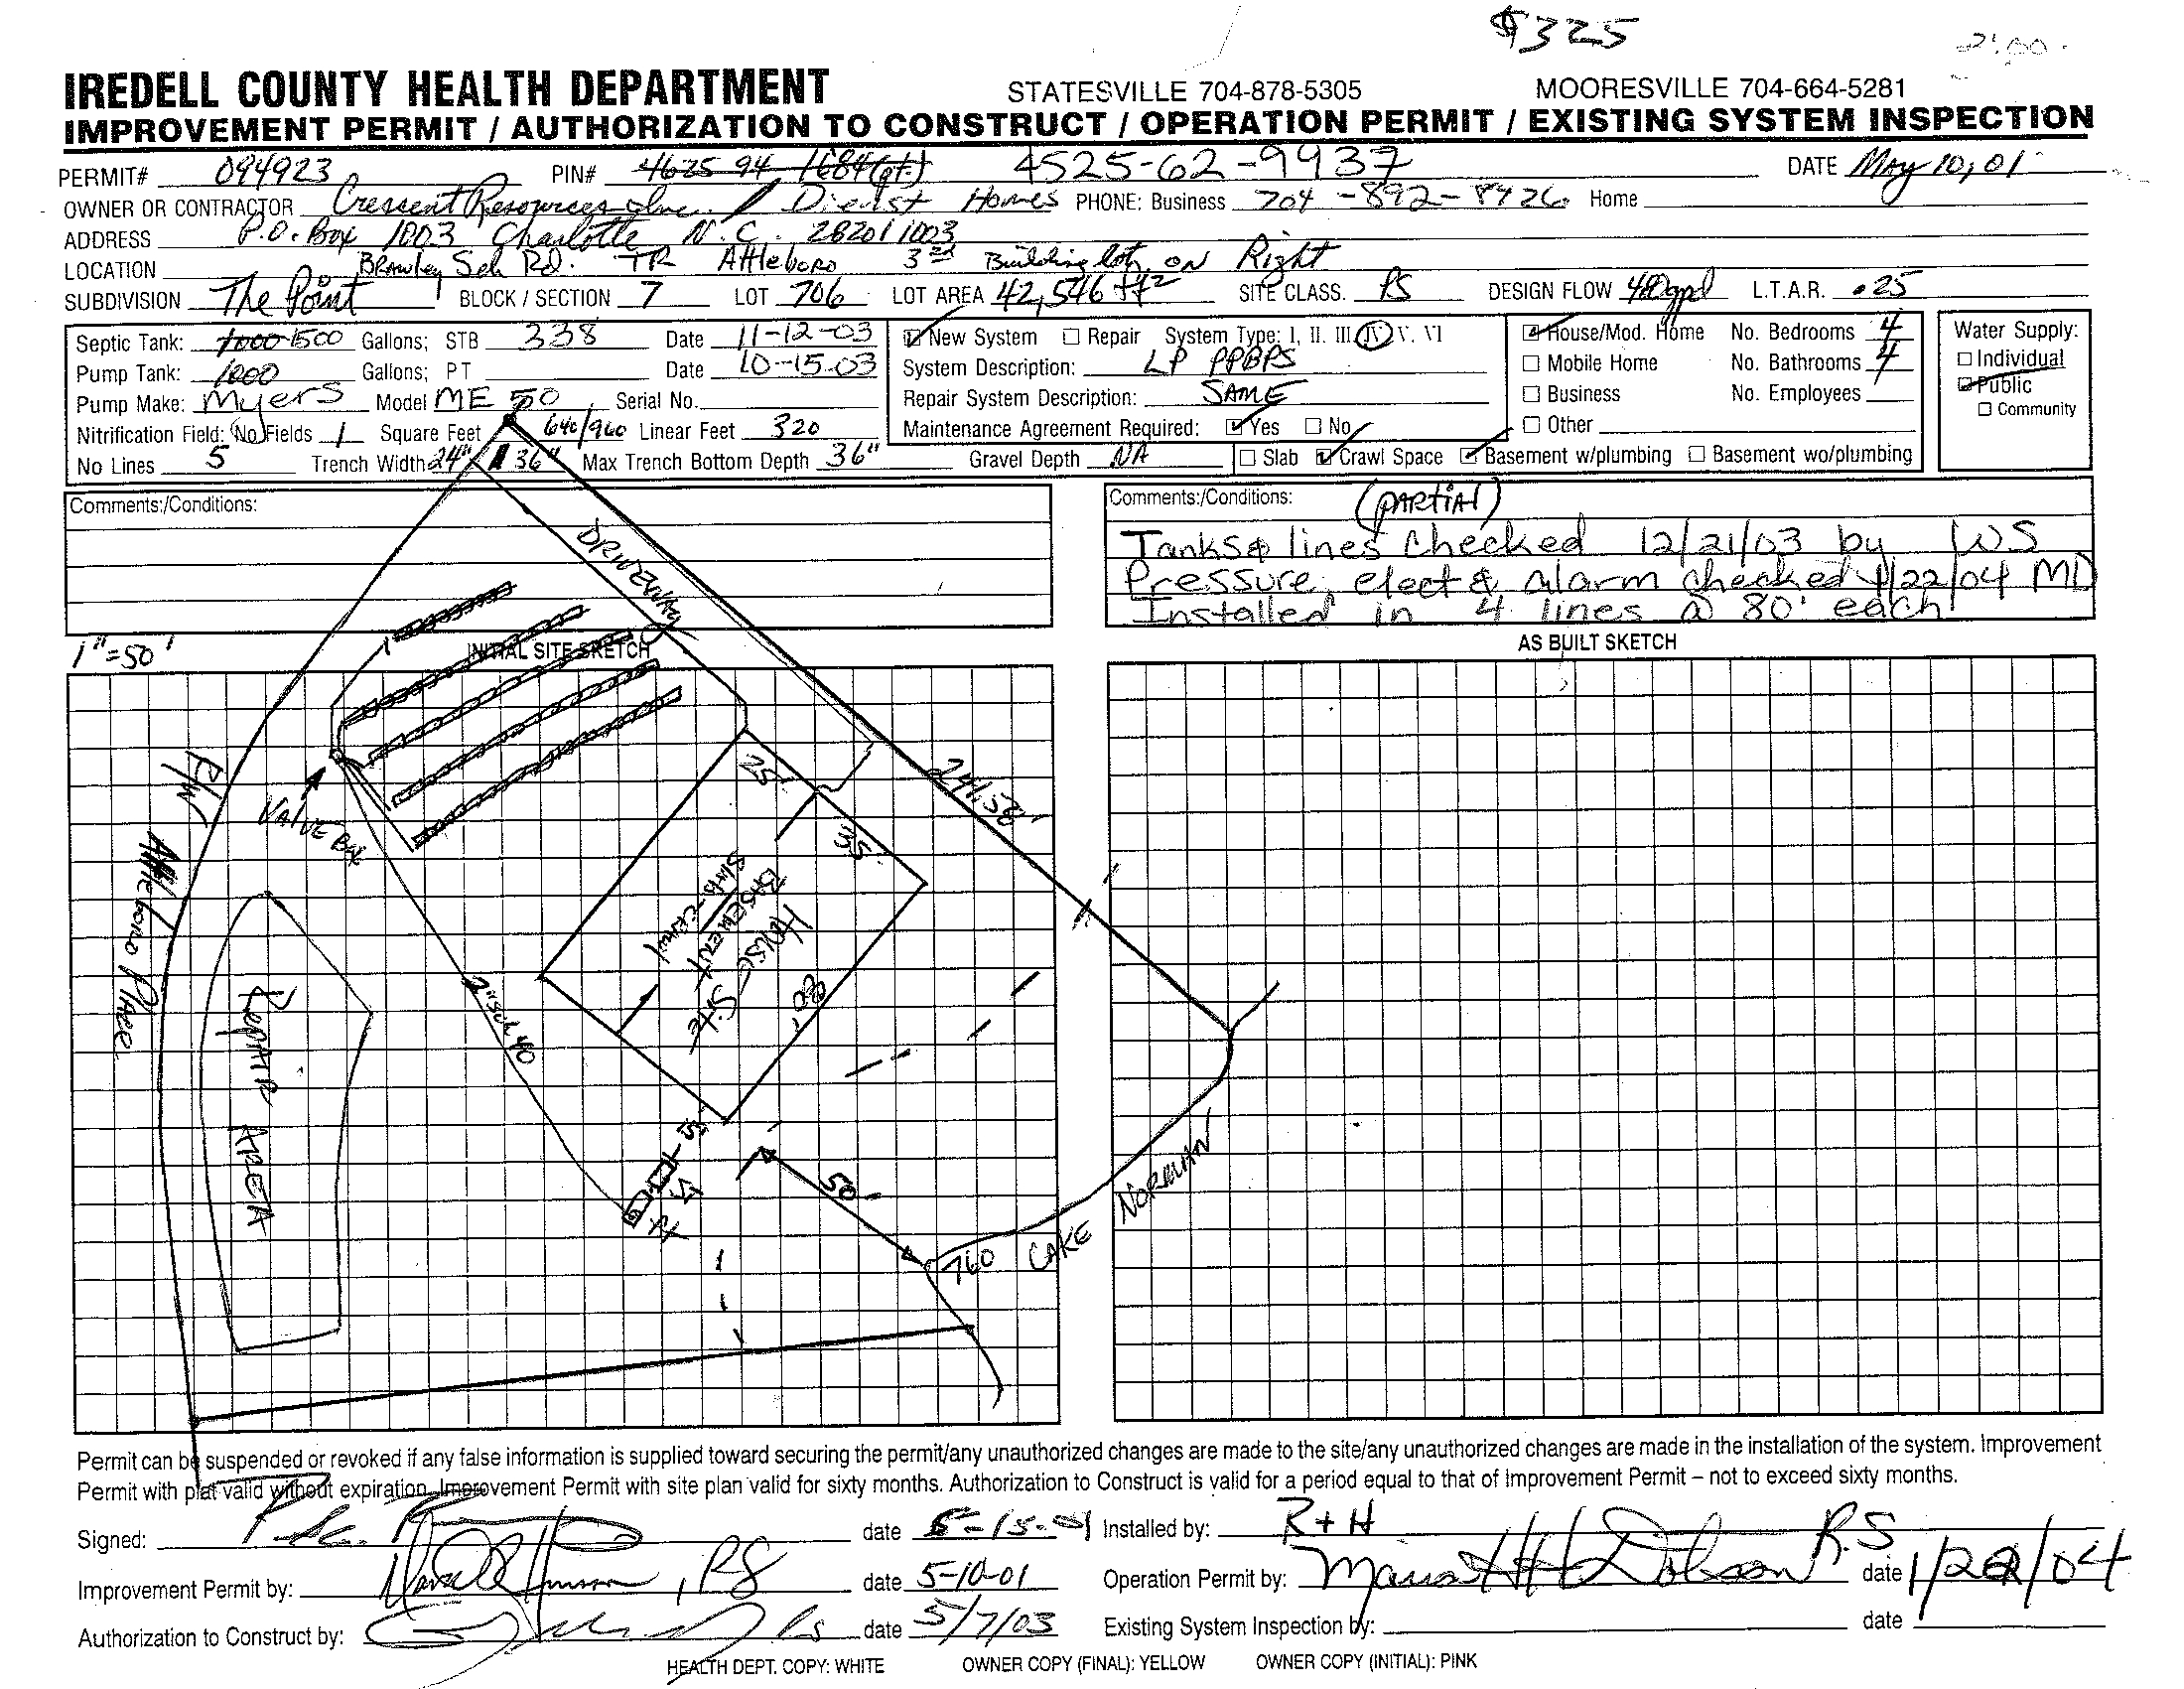 $325
2:00
IREDELL COUNTY HEALTH DEPARTMENT STATESVILLE 704-878-5305 MOORESVILLE 704-664-5281
IMPROVEMENT PERMIT / AUTHORIZATION TO CONSTRUCT / OPERATION PERMIT / EXISTING SYSTEM INSPECTION
PERMIT# 094923 PIN# 4625 94 1684 (pt.) 4525-62-9937 DATE May 10, 01
OWNER OR CONTRACTOR Crescent Resources Inc. / Dienst Homes PHONE: Business 704-892-8426 Home
ADDRESS P.O. Box 1003 Charlotte N.C. 28201 1003
LOCATION Brawley Sch Rd. TR Attleboro 3rd Building lot on Right
SUBDIVISION The Point BLOCK / SECTION 7 LOT 706 LOT AREA 42,546 ft² SITE CLASS. PS DESIGN FLOW 480gpd L.T.A.R. .25
Septic Tank: 1000 1500 Gallons; STB 338 Date 11-12-03
Pump Tank: 1000 Gallons; PT Date 10-15-03
Pump Make: Myers Model ME 50 Serial No.
Nitrification Field: No Fields 1 Square Feet 640/960 Linear Feet 320
No Lines 5 Trench Width 24" 36" Max Trench Bottom Depth 36" Gravel Depth NA
New System Repair System Type: I, II. III. IV V. VI
System Description: LP PPBPS
Repair System Description: SAME
Maintenance Agreement Required: Yes No
House/Mod. Home No. Bedrooms 4
Mobile Home No. Bathrooms 4
Business No. Employees
Other
Slab Crawl Space Basement w/plumbing Basement wo/plumbing
Water Supply:
Individual
Public
Community
Comments:/Conditions:
Comments:/Conditions: (PARTIAL)
Tanks & lines checked 12/21/03 by WS
Pressure, elect & alarm checked 1/22/04 MD
Installed in 4 lines @ 80' each
1"=50'
INITIAL SITE SKETCH
AS BUILT SKETCH
DRIVEWAY
R/W
VALVE BOX
Attleboro Place
REPAIR AREA
2" sch 40
25'
241.58
HOUSE SITE
BASEMENT
60'
5'
50
760
LAKE NORMAN
Permit can be suspended or revoked if any false information is supplied toward securing the permit/any unauthorized changes are made to the site/any unauthorized changes are made in the installation of the system. Improvement
Permit with plat valid without expiration. Improvement Permit with site plan valid for sixty months. Authorization to Construct is valid for a period equal to that of Improvement Permit – not to exceed sixty months.
Signed: date 5-15-01 Installed by: R+H
Improvement Permit by: , RS date 5-10-01 Operation Permit by: Maria H Dotson R.S date 1/22/04
Authorization to Construct by: RS date 5/7/03 Existing System Inspection by: date
HEALTH DEPT. COPY: WHITE OWNER COPY (FINAL): YELLOW OWNER COPY (INITIAL): PINK